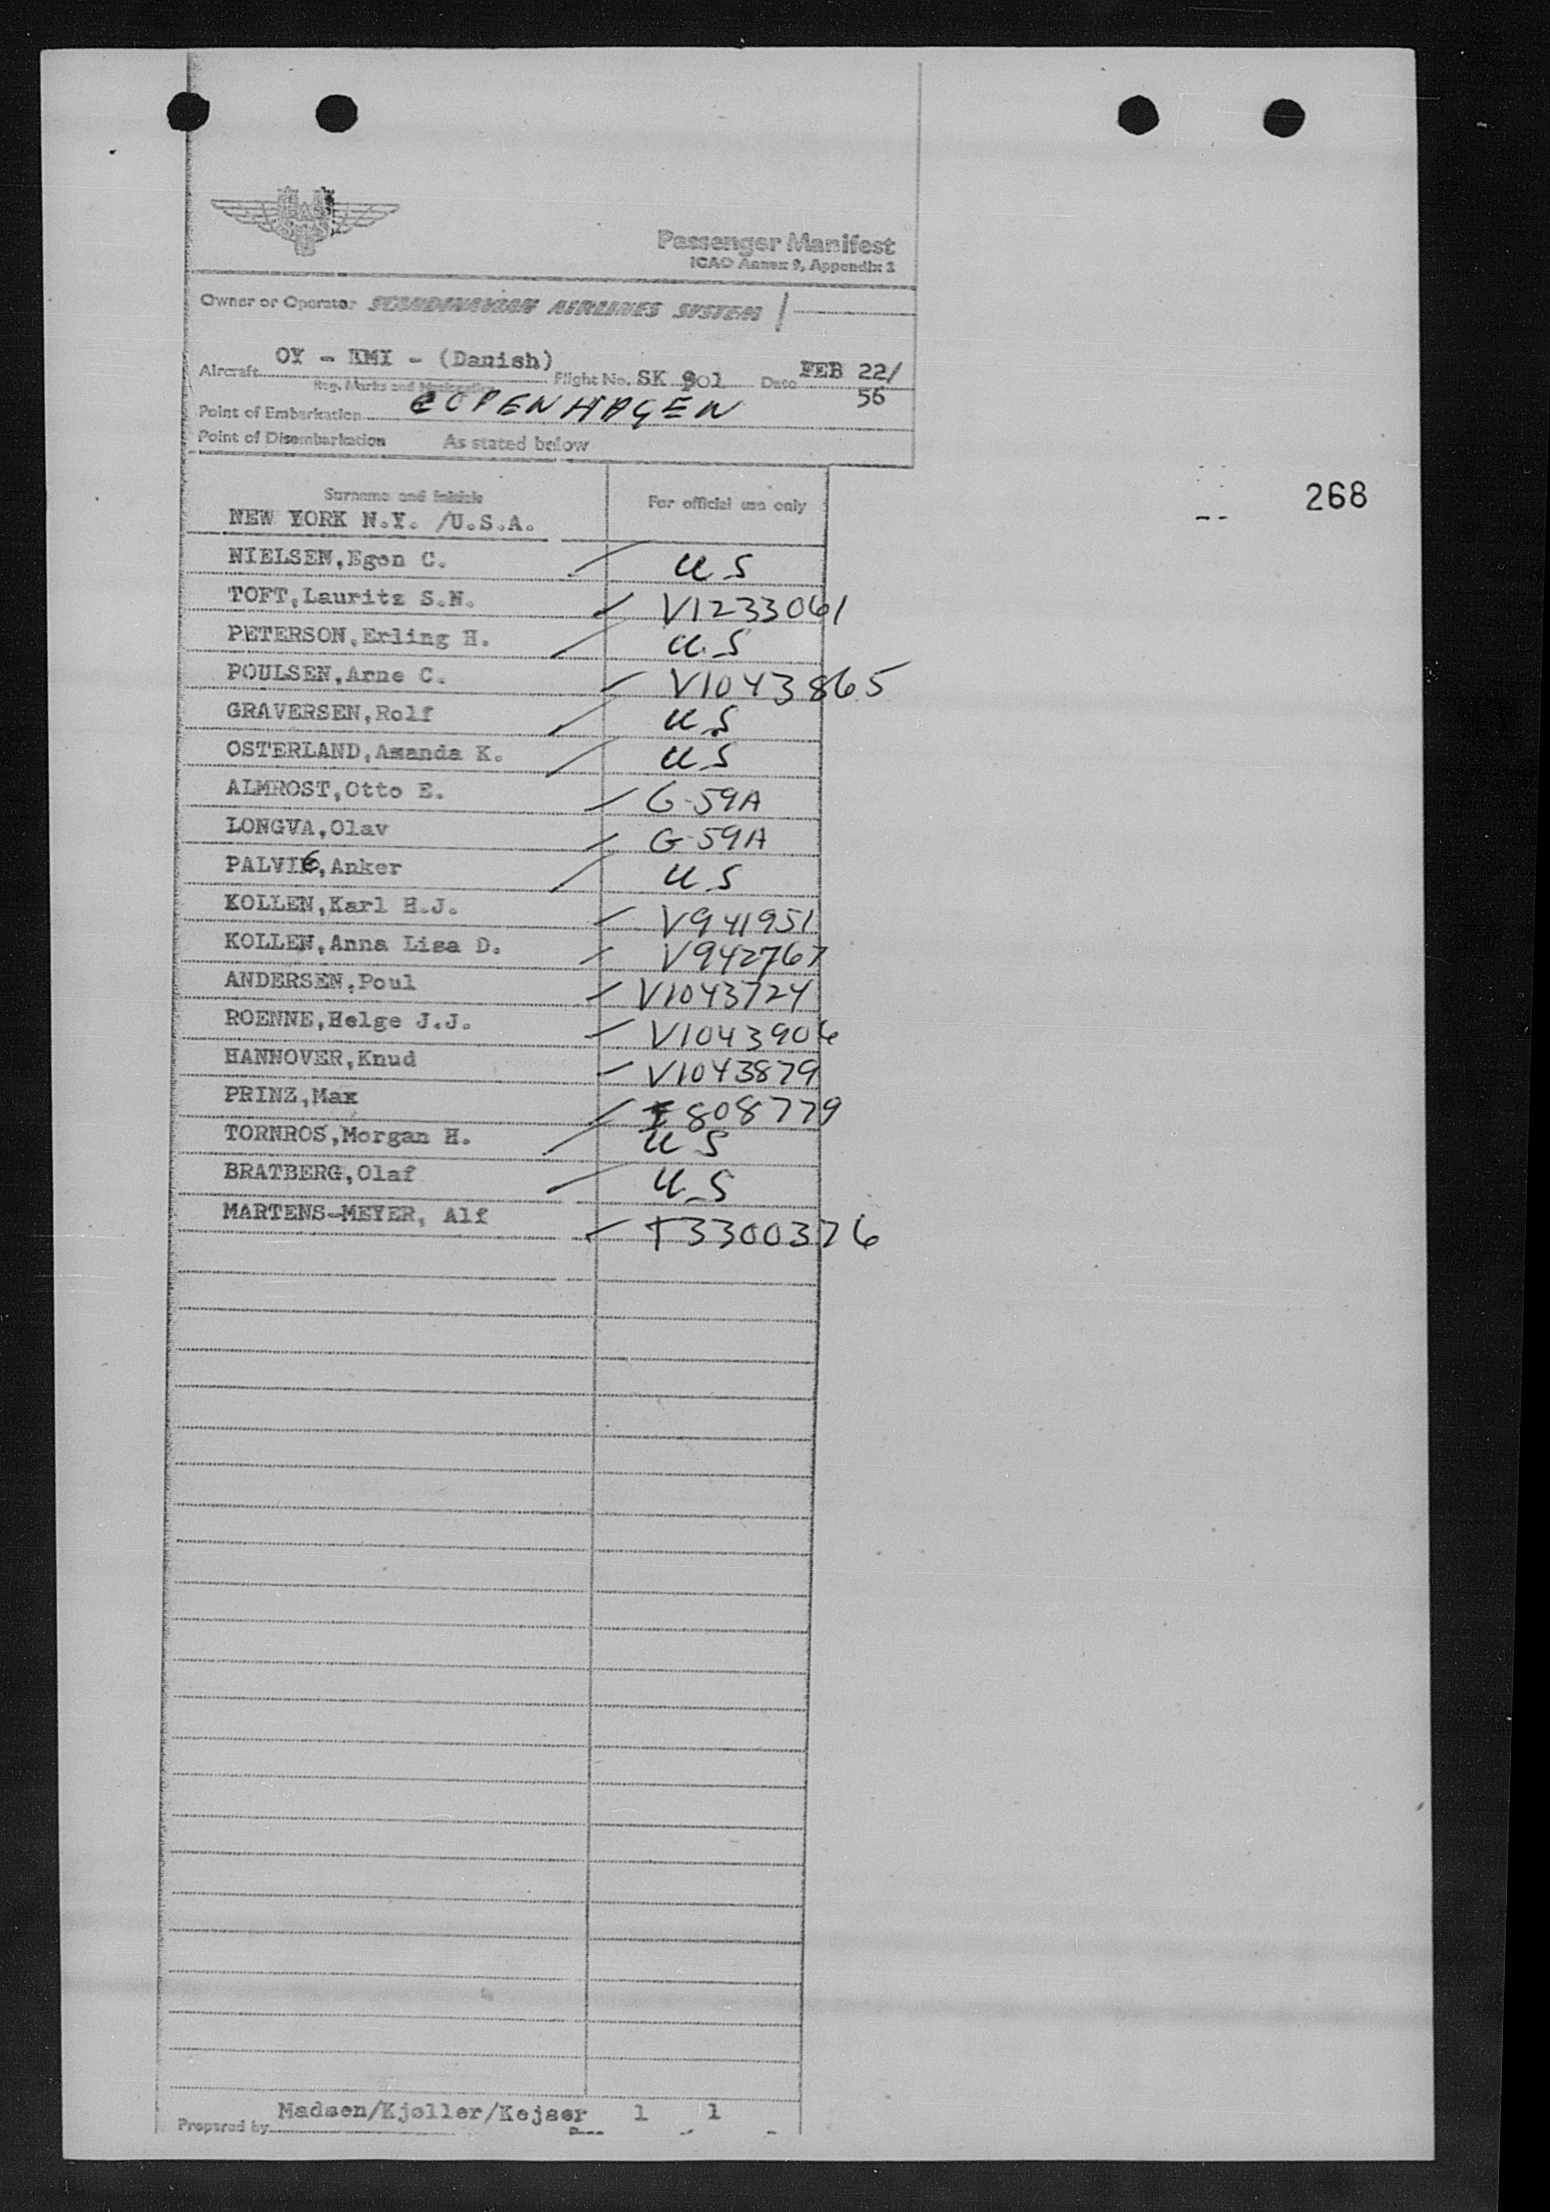 Passenger Manifest
ICAO Annex 9, Appendix 2
Owner or Operator SCANDINAVIAN AIRLINES SYSTEM /
Aircraft OY - KMI - (Danish) Flight No. SK 901 Date FEB 22/
Reg. Marks and Nationality 56
Point of Embarkation COPENHAGEN
Point of Disembarkation As stated below
Surname and initials For official use only
NEW YORK N.Y. /U.S.A.
268
NIELSEN,Egon C. US
TOFT,Lauritz S.N. V1233061
PETERSON,Erling H. U.S
POULSEN,Arne C. V1043865
GRAVERSEN,Rolf US
OSTERLAND,Amanda K. US
ALMROST,Otto E. G-59A
LONGVA,Olav G-59A
PALVIG,Anker US
KOLLEN,Karl H.J. V941951
KOLLEN,Anna Lisa D. V942767
ANDERSEN,Poul V1043724
ROENNE,Helge J.J. V1043906
HANNOVER,Knud V1043879
PRINZ,Max I808779
TORNROS,Morgan H. US
BRATBERG,Olaf US
MARTENS-MEYER, Alf T3300376
Prepared by Madsen/Kjøller/Kejser 1 1